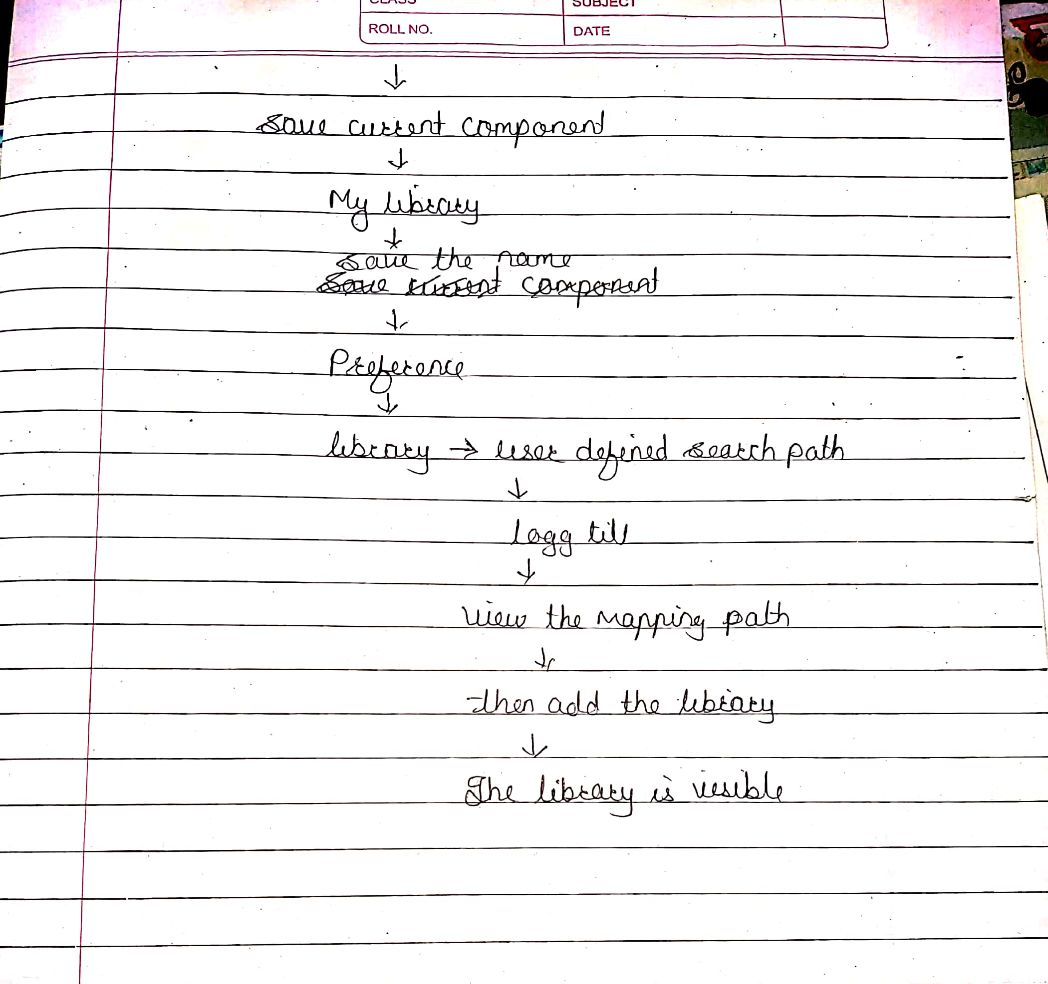 CLASS SUBJECT
ROLL NO. DATE
↓
Save current component
↓
My library
↓
save the name
Save current component
↓
Preference
↓
library → user defined search path
↓
Lagg till
↓
view the Mapping path
↓
then add the library
↓
The library is visible